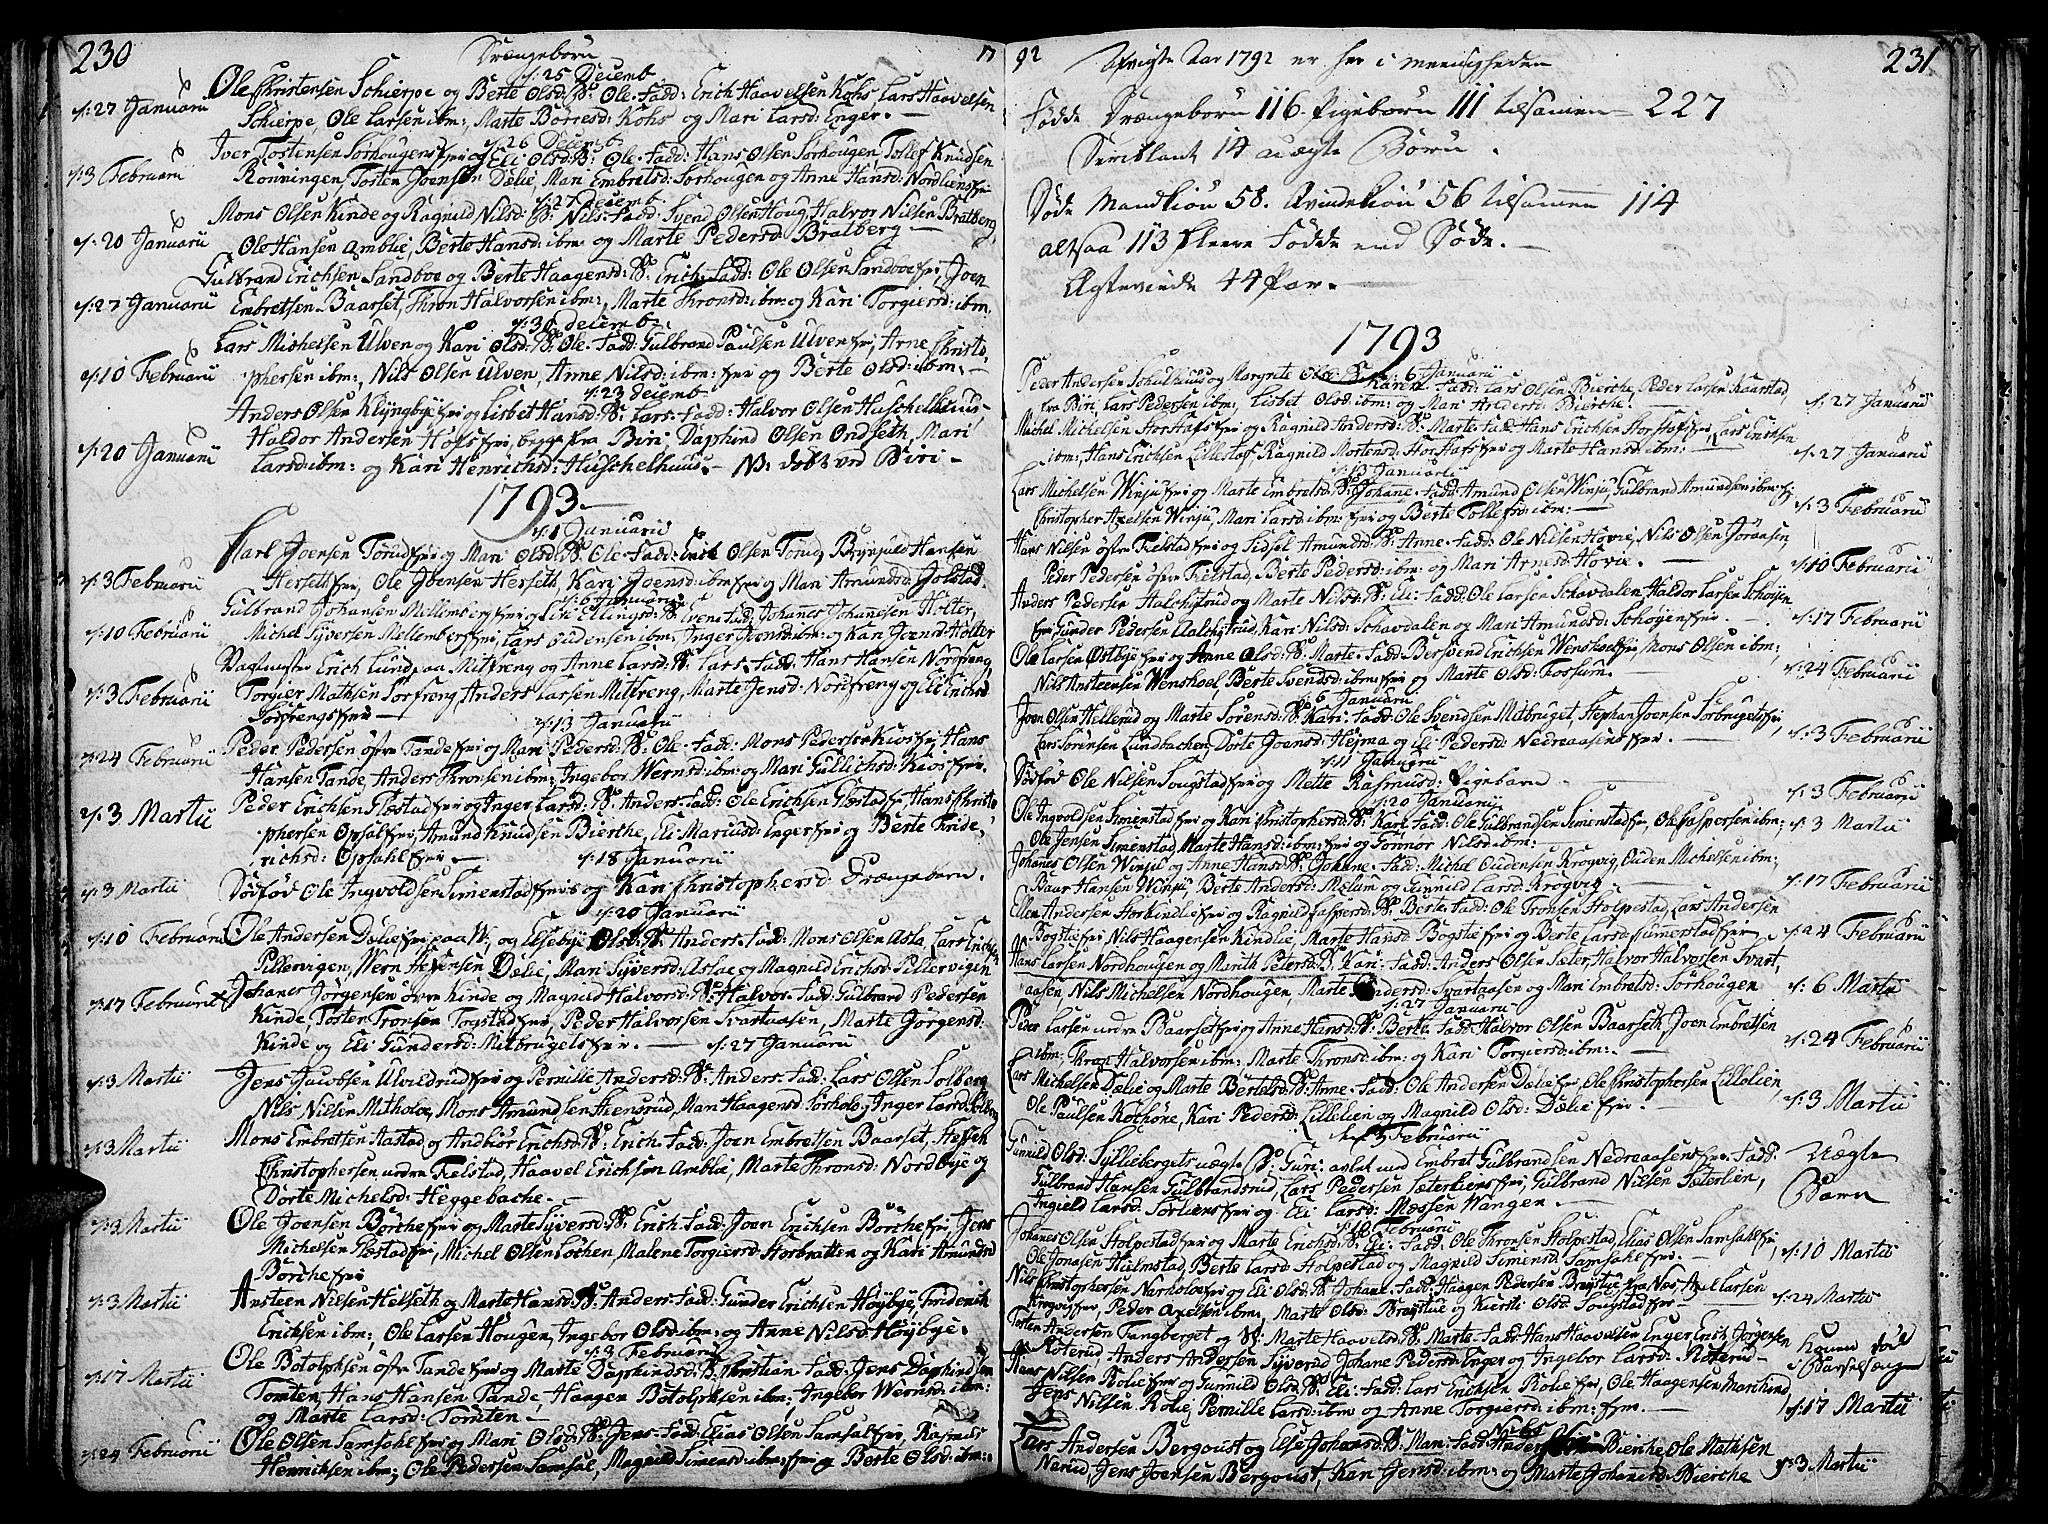 230
Drængebørn
17
d: 25 Decemb.
Ole Christensen Schierpe og Berte Olsd: B: Ole. Fadd: Erich Haavelsen Kohs, Lars Haavelsen
d: 27 Januarii
Schierpe, Ole Larsen ibm:, Marte Borresd: Kohs og Mari Larsd: Enger.
d: 26 Decemb.
Iver Tostensen Sørhougens fri og Eli Olsd: B: Ole. Fadd: Hans Olsen Sørhougen, Tollef Knudsen
d: 3 Februarii
Ronningen, Tosten Joensen Dælie, Mari Embretsd: Sørhougen og Anne Hansd: Nordliens fri
d: 27 Decemb.
Mons Olsen Kinde og Ragnild Nilsd: B: Nils. Fadd: Svend Olsen Houg, Halvor Nilsen Bratberg
d: 20 Januarii
Ole Hansen Amblie, Berte Hansd: ibm: og Marte Pedersd: Bratberg
Gulbrand Erichsen Sandboe og Berte Haagensd: B: Erich. Fadd: Ole Olsen Sandboe fri, Joen
d: 27 Januarii
Embretsen Baarset, Thron Halvorsen ibm:, Marte Thronsd: ibm: og Kari Torgiersd: ibm.
d: 30 Decemb.
Lars Michelsen Ulven og Kari Olsd: B: Ole. Fadd: Gulbrand Paulsen Ulven fri, Arne Christo
d: 10 Februarii
phersen ibm:, Nils Olsen Ulven, Anne Nilsd: ibm: fri og Berte Olsd: ibm:
d: 23 Decemb
Anders Olsen Klyngbye fri og Lisbet Hansd: B: Lars. Fadd: Halvor Olsen Huschelhuus
d: 20 Januarii
Haldor Andersen Hofs fri, begge fra Biri, Daphind Olsen Ondseth, Mari
Larsd: ibm: og Kari Henrichsd: Huschelhuus. NB: døbt ved Biri
1793.
d: 1 Januarii
Carl Joensen Torud fri og Mari Olsd: B: Ole. Fadd: Erick Olsen Torud, Brynjuld Hansen
d: 3 Februarii
Herseth fri, Ole Joensen Herseth, Kari Joensd: ibm: fri og Mari Amundsd: Jolstad.
d: 6 Januarii
Gulbrand Johansen Mellemberg fri og Eli Ellingsd: B: Even. Fadd: Johannes Johanesen Holter
d: 10 Februarii
Michel Syversen Mellemberg fri, Lars Oudensen ibm: Inger Joensd: ibm: og Kari Joensd: Holter
Vagtmester Erich Lund paa Mitfreng og Anne Larsd: B: Lars. Fadd: Hans Hansen Nordfreng,
d: 3 Februarii
Torgier Mathsen Sørfreng, Anders Larsen Mitfreng, Marte Jensd: Nordfreng og Eli Erichsd
Sørfrengs fri
d: 13 Januarii
Peder Pedersen øfre Tande fri og Mari Pedersd: B: Ole. Fadd: Mons Pedersen Kios fri, Hans
d: 24 Februarii
Hansen Tande, Anders Thronsen ibm: Ingebor Wernsd: ibm: og Mari Gullichsd: Kios fri.
Peder Erichsen Flæstad fri og Inger Larsd: B: Anders. Fadd: Ole Erichsen Flæstad fri, Hans Christo
d: 3 Martii
phersen Opsal fri, Amund Knudsen Bierche, Eli Mariusd: Enger fri og Berte Fride,
richsd: Opsahl fri
d: 18 Januarii
d: 3 Martii
Dødfød Ole Ingvoldsen Simenstad fri og Kari Christophersd: Drængebarn.
d: 20 Januarii
d: 10 Februarii
Ole Andersen Dælie fri paa W: og Elsebye Olsd: B: Anders. Fadd: Mons Olsen Asla, Lars Erichsen
Pillervigen, Wern Jensen Dælie, Mari Syversd: Aslae og Magnild Erichsd: Pillervigen
d: 17 Februarii
Johanes Jørgensen øvre Kinde og Magnild Halvorsd: B: Halvor. Fadd: Gulbrand Pedersen
Kinde, Tosten Tronsen Togstad fri, Peder Halvorsen Svartaasen, Marte Jørgensd:
Kinde og Eli Gundersd: Mitbrugets fri. d: 27 Januarii
d: 3 Martii
Jens Jacobsen Ulvildrud fri og Pernille Andersd: B: Anders. Fadd: Lars Olsen Solberg
Nils Nilsen Mitholoe, Mons Amundsen Steensrud, Mari Haagensd: Sørholo og Inger Larsd: Solberg
d: 3 Martii
Mons Embretsen Aastad og Andbiør Erichsd: B: Erich. Fadd: Joen Embretsen Baarset, Steffen
Christophersen nedre Fielstad, Haavel Erichsen Amblie, Marte Thronsd: Nordbye og
Dorte Michelsd: Heggebache.
d: 3 Martii
Ole Joensen Børche fri og Marte Syversd: B: Erich. Fadd: Joen Erichsen Børche fri, Jens
Michelsen Flæstad fri, Michel Olsen Løchen, Malene Torgiersd: Storbratten og Kari Amundsd
Børche fri
d: 3 Martii
Ansteen Nilsen Helseth og Marte Hansd: B: Anders. Fadd: Gunder Erichsen Høybye, Friderich
Erichsen ibm:, Ole Larsen Hougen, Ingebor Olsd: ibm: og Anne Nilsd: Høybye.
d: 3 Februarii
d: 17 Martii
Ole Botolphsen øfre Tande fri og Marte Daphindsd: B: Christian. Fadd: Jens Daphindsen
Tomten, Hans Hansen Tande, Haagen Botolphsen ibm:, Ingebor Wernsd: ibm:
og Marte Larsd: Tomten
d: 24 Februarii
Ole Olsen Samsahl fri og Mari Olsd: B: Jens. Fadd: Elias Olsen Samsal fri, Rasmus
Henriksen ibm:, Ole Pedersen Samsal, Magnild Simensd: ibm: fri og Berte Olsd: ibm:
92
231
Afvigte Aar 1792 er her i meenigheden
Fødde Drængebørn 116. Pigebørn 111 tilsamen 227
Deriblant 14 uægte Børn.
Døde Mandkiøn 58. Qvindekiøn 56 tilsamen 114
altsaa 113 fleere Fødde end Døde.
Ægteviede 44 Par.
1793
d: 6 Januarii
Peder Andersen Schulhuus og Margrete Olsd: B: Karen. Fadd: Lars Olsen Bierche, Peder Larsen Kaarstad,
d: 27 Januarii
fra Biri, Lars Pedersen ibm:, Lisbet Olsd: ibm: og Mari Andersd: Bierche.
Michel Michelsen Storstafs fri og Ragnild Andersd: B: Marte. Fadd: Hans Erichsen Storstafs fri, Lars Erichsen
d: 27 Januarii
ibm:, Hans Erichsen Lillestaf, Ragnild Mortensd: Storstafs fri og Marte Hansd: ibm:
d: 13 Januarii
Lars Michelsen Winju fri og Marte Embretsd: B: Johane. Fadd: Amund Olsen Winju, Gulbrand Amundsen ibm: fri
d: 3 Februarii
Christopher Axelsen Winju, Mari Larsd: ibm: fri og Berte Tollefsd: ibm:
Hans Nilsen øfre Fielstad fri og Sidsel Amundsd: B: Anne. Fadd: Ole Nilsen Hovie, Nils Olsen Joraasen,
d: 10 Februarii
Peder Pedersen øfre Fielstad, Berte Pedersd: ibm: og Mari Arnesd: Hovie.
Anders Pedersen Halchytrud og Marte Nilsd: B: Eli. Fadd: Ole Larsen Schavdalen, Haldor Larsen Schøyen
d: 17 Februarii
fri Gunder Pedersen Aalchytrud, Kari Nilsd: Schavdalen og Mari Amundsd: Schøyen fri.
Ole Larsen Østbye fri og Anne Olsd: B: Marte. Fadd: Bersvend Erichsen Wenskoel fri, Mons Olsen ibm:,
d: 24 Februarii
Nils Ansteensen Wenskoel, Berte Svendsd: ibm: fri og Marte Olsd: Fossum.
d: 6 Januarii
Joen Olsen Hellerud og Marte Sørensd: B: Kari. Fadd: Ole Svendsen Mitbruget, Stephan Joensen Sørbrugets fri,
d: 3 Februarii
Lars Sørensen Lundbachen, Dorte Joensd: Hejma og Eli Pedersd: Nedreaasens fri.
d: 11 Januarii
Dødfød Ole Nilsen Songstad fri og Mette Rasmusd: Pigebarn
d: 3 Februarii
d: 20 Januarii
Ole Ingvoldsen Simenstad fri og Kari Christophersd: B: Kari. Fadd: Ole Gulbrandsen Simenstad fri, Ole Caspersen ibm:
d: 3 Martii
Ole Jensen Simenstad, Marte Hansd: ibm: fri og Gonnor Nilsd: ibm:
Johanes Olsen Winju og Anne Hansd: B: Johane. Fadd: Michel Oudensen Krogvig, Ouden Michelsen ibm:
d: 17 Februarii
Baar Hansen Winju, Berte Andersd: Mælum og Gunnild Larsd: Krogvig
Ellen Andersen Storkindlie fri og Ragnild Caspersd: B: Berte. Fadd: Ole Tronsen Stolpestad, Lars Andersen
d: 24 Februarii
Bogstie fri Nils Haagensen Kindlie, Marte Hansd: Bogstie fri og Berte Larsd: Simenstad fri
Hans Larsen Nordhougen og Marith Petersd: B: Kari. Fadd: Anders Olsen Sæter, Halvor Halvorsen Svart,
d: 6 Martii
aasen, Nils Michelsen Nordhougen, Marte Andersd: Svartaasen og Mari Embretsd: Sørhougen
d: 27 Januarii
Peder Larsen nedre Baarset fri og Anne Hansd: B: Berte. Fadd: Halvor Olsen Baarseth, Joen Embretsen
d: 24 Februarii
ibm:, Thron Halvorsen ibm:, Marte Thronsd: ibm: og Kari Torgiersd: ibm:
Lars Michelsen Dælie og Marte Bertelsd: B: Anne. Fadd: Ole Andersen Dælie fri, Ole Christophersen Lillelien,
d: 3 Martii
Ole Paulsen Kochone, Kari Pedersd: Lillelien og Magnild Olsd: Dælie fri.
d: 3 Februarii
Gunnild Olsd: Syllieberget uægte B: Guri. avlet med Embret Gulbrandsen Nedreaasens fri. Fadd:
Uægte
Gulbrand Hansen Gulbrandsrud, Lars Pedersen Sæterliens fri, Gulbrand Nilsen Sæterlien,
Barn
Ingield Larsd: Sørliens fri og Eli Larsd: Mæssen Wangen.
d: 10 Februarii
Johanes Olsen Stolpestad fri og Marte Erichsd: B: Eli. Fadd: Ole Thronsen Stolpestad, Elias Olsen Samsahl fri,
d: 10 Martii
Ole Jonasen Hielmstad, Berte Larsd: Stolpestad og Magnild Simensd: Samsahl fri.
Nils Christophersen Narholoe fri og Eli Olsd: B: Johane. Fadd: Haagen Pedersen Brøystue fra Næs, Axel Larsen
d: 24 Martii
Krogvig fri, Peder Axelsen ibm:, Marte Olsd: Brøystue og Kiersti Olsd: Songstad fri
Tosten Andersen Fangberget og B: Marte Haavelsd: B: Marte. Fadd: Hans Haavelsen Enger, Erich Jørgensen
konen død
Roterud, Anders Andersen Syverud, Johane Pedersd: Enger og Ingebor Larsd: Roterud
i Barselseng
Hans Nilsen Rolie fri og Gunnild Olsd: B: Eli. Fadd: Lars Erichsen Rolie fri, Ole Haagensen Marchind,
d: 17 Martii
Jens Nilsen Rolie, Pernille Larsd: ibm og Anne Torgiersd: ibm: fri.
Lars Andersen Bergqvist og Else Johansd: B: Mari. Fadd: Anders Bierche, Ole Mathsen
d: 3 Martii
Narud, Jens Joensen Bergqvist, Kari Jensd: ibm: og Marte Johanesd: Bierche